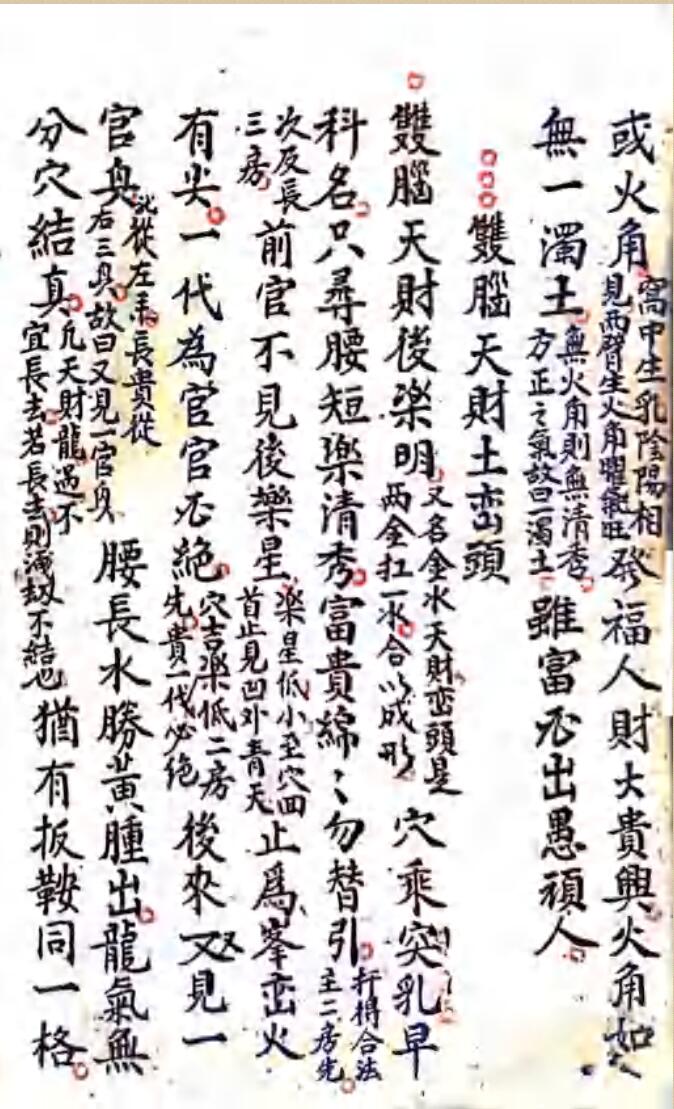 或火角窩中生乳陰陽相見兩臂生火角曜氣旺發福人財大貴興火角如
無一濁土無火角則無清秀方正之氣故曰一濁土雖富必出愚頑人
雙腦天財土巒頭
雙腦天財後樂明又名金水天財巒頭是兩金扛一水合以成形穴乘突乳早
科名只尋腰短樂清秀富貴綿〻勿替引打得合法主二房先
次反長三房前官不見後樂星樂星低小至穴回首止見凹外青天止為峯巒火
有尖一代為官官必絕穴吉樂低二房先貴一代必絕後來又見一
官鬼從左來長貴從右三鬼故曰又見一官鬼腰長水勝黃腫出龍氣無
分穴結真凡天財龍過不宜長去若長去則不結也猶有扳鞍同一格